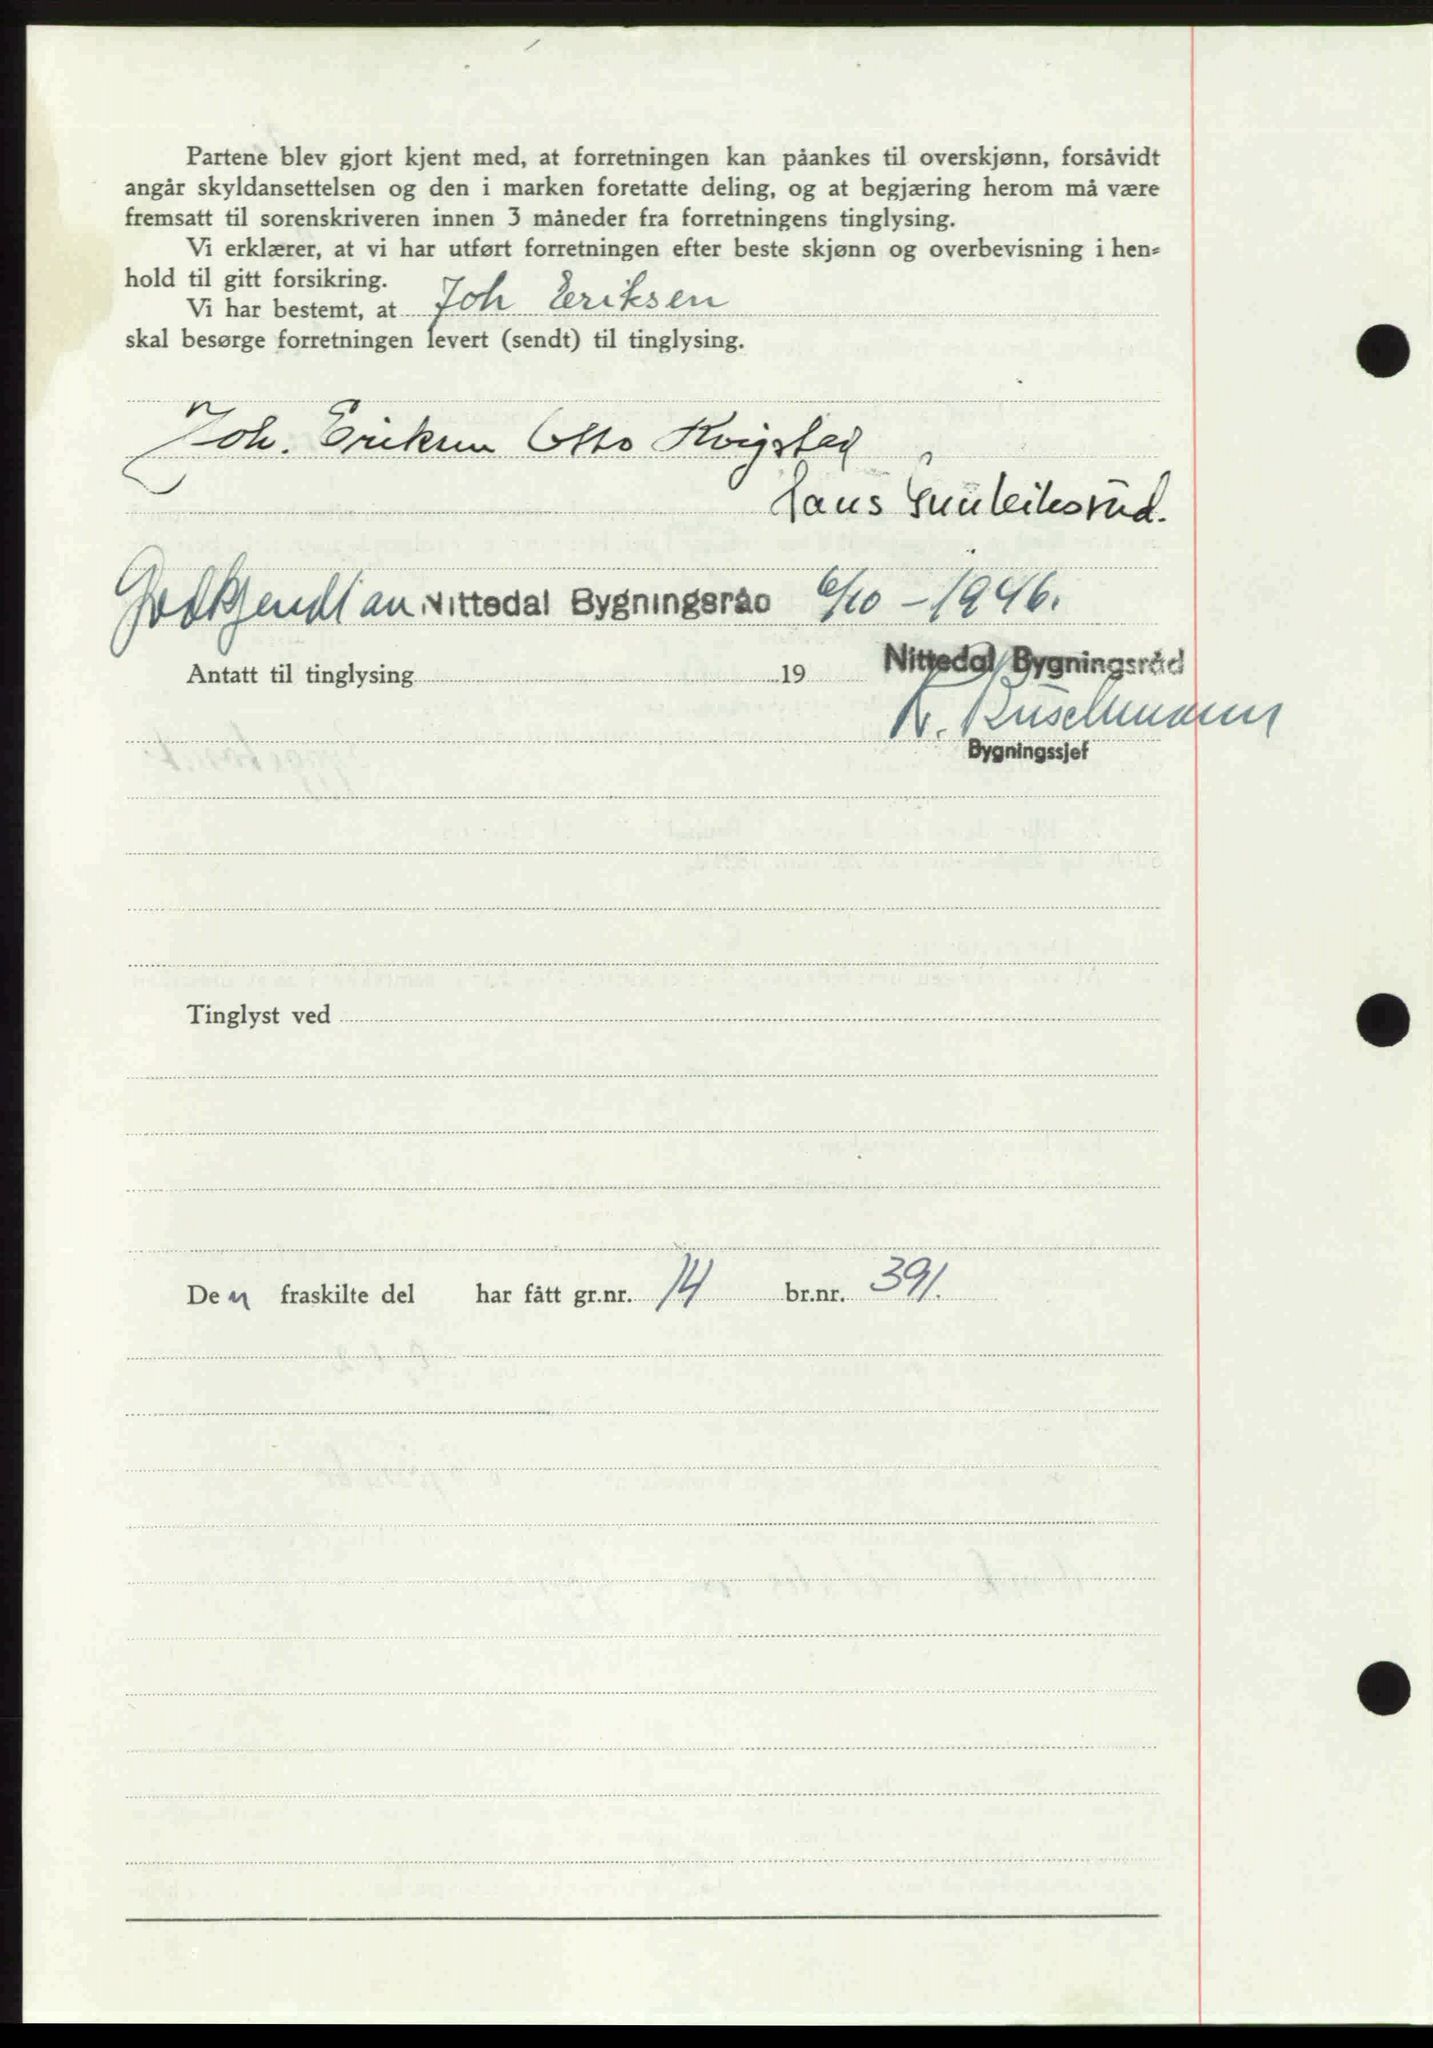 Partene blev gjort kjent med, at forretningen kan påankes til overskjønn, forsåvidt
angår skyldansettelsen og den i marken foretatte deling, og at begjæring herom må være
fremsatt til sorenskriveren innen 3 måneder fra forretningens tinglysing.
Vi erklærer, at vi har utført forretningen efter beste skjønn og overbevisning i hen-
hold til gitt forsikring.
Vi har bestemt, at Joh Eriksen
skal besørge forretningen levert (sendt) til tinglysing.
Joh. Eriksen Otto Kvigstad
Hans Gunleiksrud.
Godkjendt av Nittedal Bygningsråd 6/10-1946.
Antatt til tinglysing 19
Nittedal Bygningsråd
K. Buschmann
Bygningssjef
Tinglyst ved
Den fraskilte del har fått gr.nr. 14 br.nr. 391.